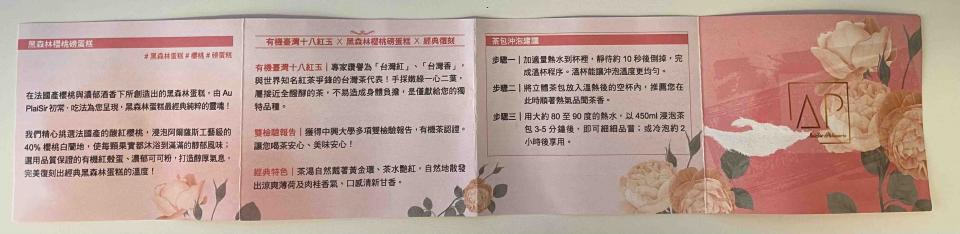 黑森林櫻桃磅蛋糕
#黑森林蛋糕 #櫻桃 #磅蛋糕
在法國產櫻桃與濃郁酒香下所創造出的黑森林蛋糕,由 Au
PlaiSir 初常,吃法為您呈現,黑森林蛋糕最經典純粹的靈魂!
我們精心挑選法國產的酸紅櫻桃,浸泡阿爾薩斯工藝級的
40% 櫻桃白蘭地,使每顆果實都沐浴到滿滿的醇郁風味;
選用品質保證的有機紅殼蛋、濃郁可可粉,打造醇厚氣息,
完美復刻出經典黑森林蛋糕的溫度!
有機臺灣十八紅玉 X 黑森林櫻桃磅蛋糕 X 經典復刻
有機臺灣十八紅玉|專家讚譽為「台灣紅」、「台灣香」,
與世界知名紅茶爭鋒的台灣茶代表!手採嫩綠一心二葉,
屬接近全醱酵的茶,不易造成身體負擔,是僅獻給您的獨
特品種。
雙檢驗報告|獲得中興大學多項雙檢驗報告,有機茶認證。
讓您喝茶安心、美味安心!
經典特色|茶湯自然戴著黃金環、茶水艷紅,自然地散發
出涼爽薄荷及肉桂香氣、口感清新甘香。
茶包沖泡建議
步驟一|加適量熱水到杯裡,靜待約 10 秒後倒掉,完
成溫杯程序。溫杯能讓沖泡溫度更均勻。
步驟二|將立體茶包放入溫熱後的空杯內,推薦您在
此時順著熱氣品聞茶香。
步驟三|用大約 80 至 90 度的熱水,以 450ml 浸泡茶
包 3-5 分鐘後,即可細細品嘗;或冷泡約 2
小時後享用。
AP